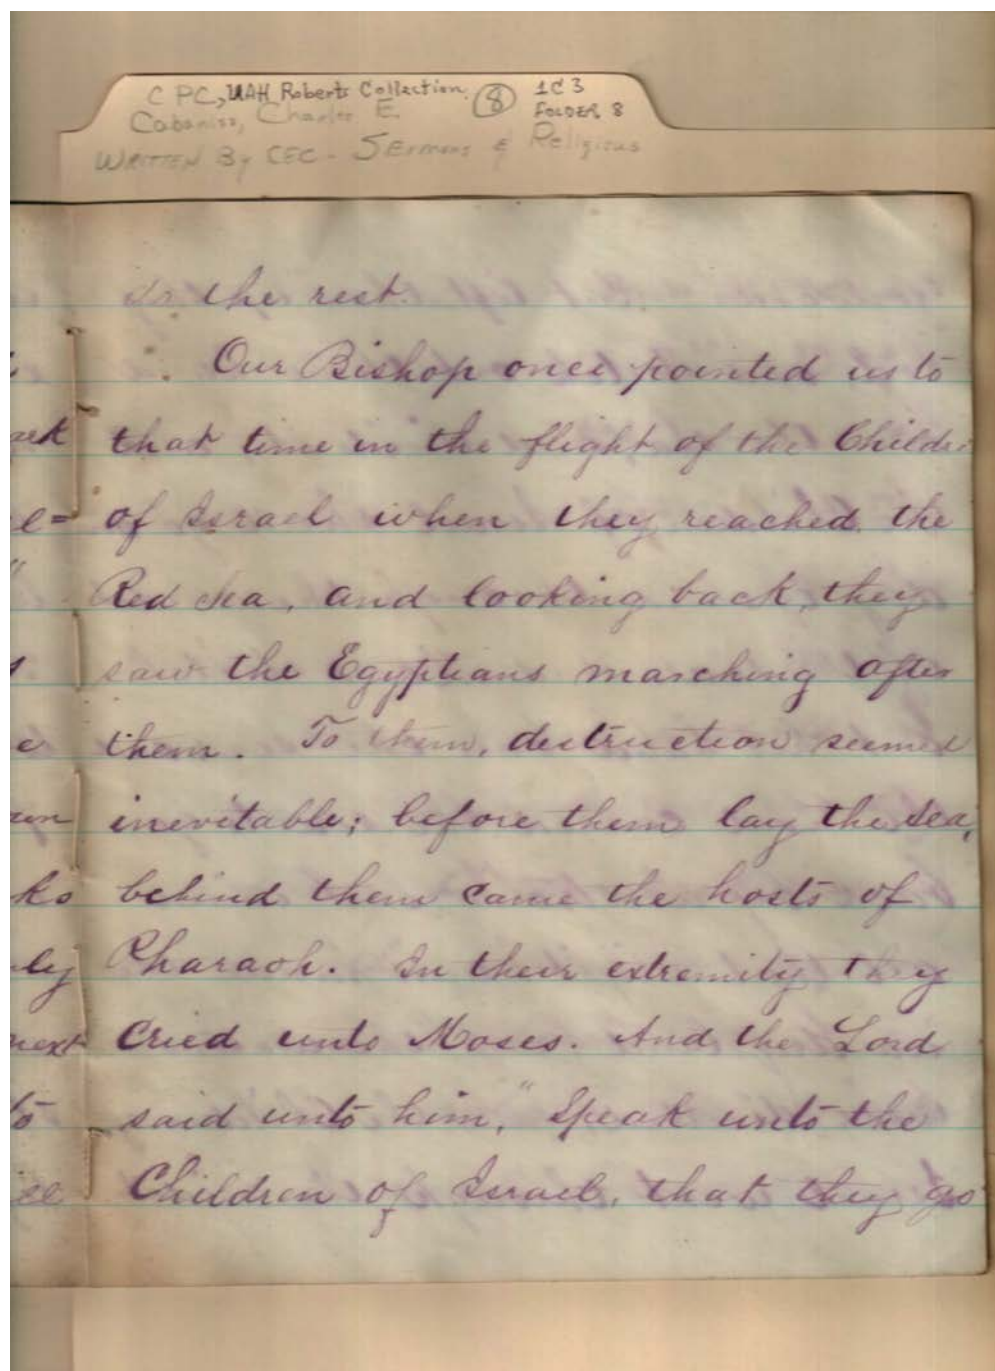 C PC, UAH Roberts Collection 8 1C3
Cabaniss, Charles E. FOLDER 8
WRITTEN By CEC - SErmons & Religious
the rest.
Our Bishop once pointed us to
that time in the flight of the Childre
of Israel when they reached the
Red Sea, and looking back, they
saw the Egyptians marching after
them. To them, destruction seemed
inevitable; before them lay the Sea,
behind them came the hosts of
Pharaoh. In their extremity they
Cried unto Moses. And the Lord
said unto him, "Speak unto the
Children of Israel, that they go